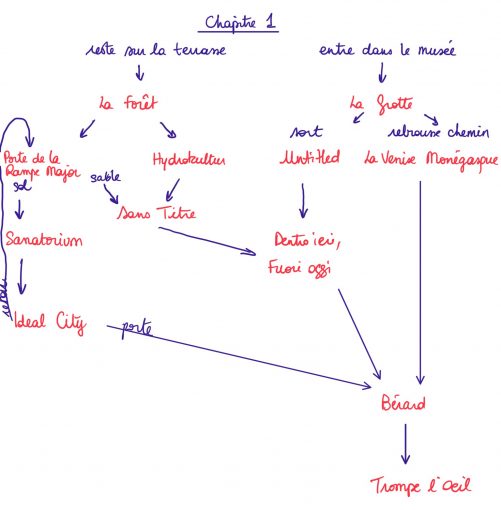 Chapitre 1
reste sur la terrasse
entre dans le musée
La Forêt
La Grotte
sort
rebrousse chemin
Porte de la
Rampe Major
Hydrokultur
Untitled
La Venise Monégasque
sol
sable
Sans Titre
Sanatorium
Dentro ieri,
Fuori oggi
Ideal City
porte
Bérard
Trompe l'Oeil